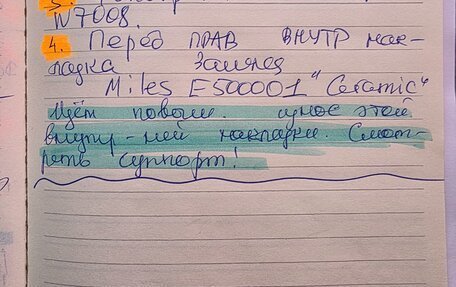 3.
N7008.
4. Перед ПРАВ ВНУТР нак-
ладка
Miles E500001 "Ceramic"
Идём повыш. износ этой
внутр-ней накладки. Смот-
реть суппорт!